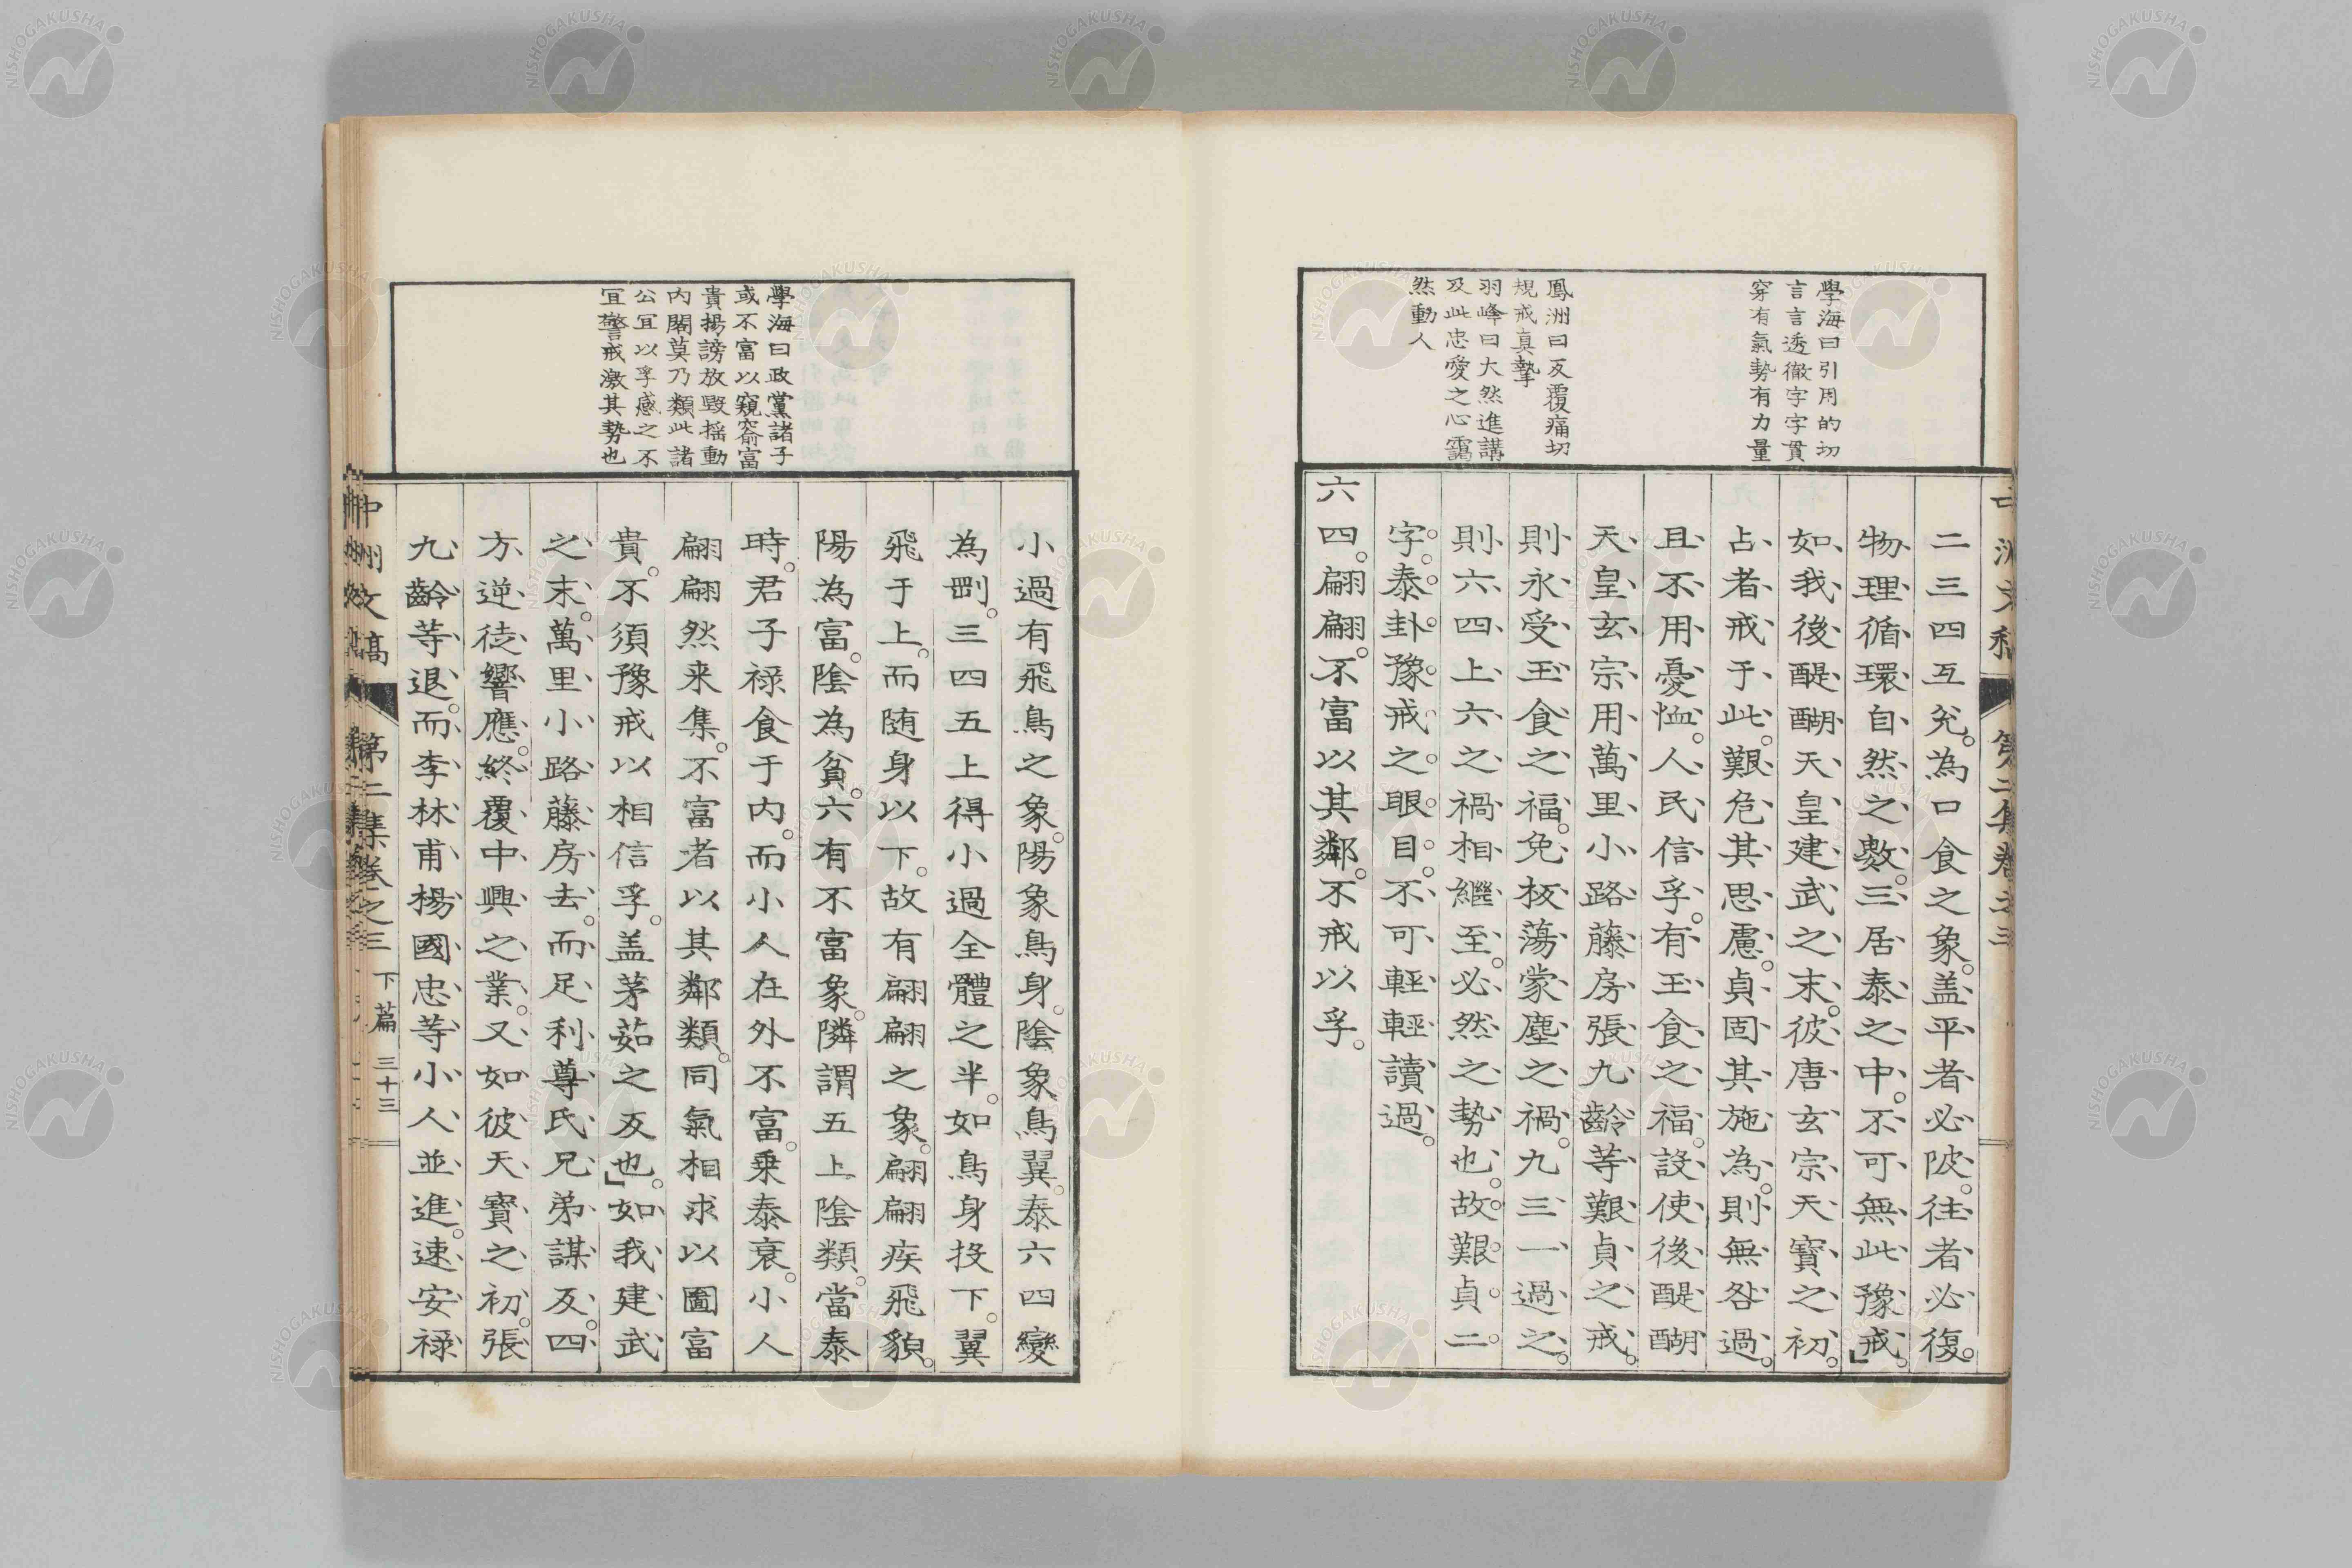 學海曰引用的切
言言透徹字字貫
穿有氣勢有力量
鳳洲曰反覆痛切
規戒真摯
羽峰曰大然進講
及此忠愛之心靄
然動人
二三四互兌。為口食之象。盖平者必陂。往者必復。
物理循環自然之數。三居泰之中。不可無此豫戒。」
如我後醍醐天皇建武之末。彼唐玄宗天寶之初。
占者戒于此。艱危其思慮。貞固其施為。則無咎過。
且不用憂恤。人民信孚。有玉食之福。設使後醍醐
天皇玄宗用萬里小路藤房張九齡等艱貞之戒。
則永受玉食之福。免板蕩蒙塵之禍。九三一過之。
則六四上六之禍相繼至。必然之勢也。故艱貞二
字。泰卦豫戒之眼目。不可輕輕讀過。
六四。翩翩。不富以其鄰。不戒以孚。
學海曰政黨諸子
或不富以窺窬富
貴揚謗放毀搖動
內閣莫乃類此諸
公宜以孚感之不
宜警戒激其勢也
小過有飛鳥之象。陽象鳥身。陰象鳥翼。泰六四變
為剛。三四五上得小過全體之半。如鳥身投下。翼
飛于上。而随身以下。故有翩翩之象。翩翩疾飛貌。
陽為富。陰為貧。六有不富象。隣謂五上陰類。當泰
時。君子祿食于内。而小人在外不富。乗泰衰。小人
翩翩然来集。不富者以其鄰類。同氣相求以圖富
貴。不須豫戒以相信孚。盖茅茹之反也。」如我建武
之末。萬里小路藤房去。而足利尊氏兄弟謀反。四
方逆徒響應。終覆中興之業。又如彼天寶之初。張
九齡等退。而李林甫楊國忠等小人並進。速安禄
中洲文稿 第二集卷之三 下篇 三十三